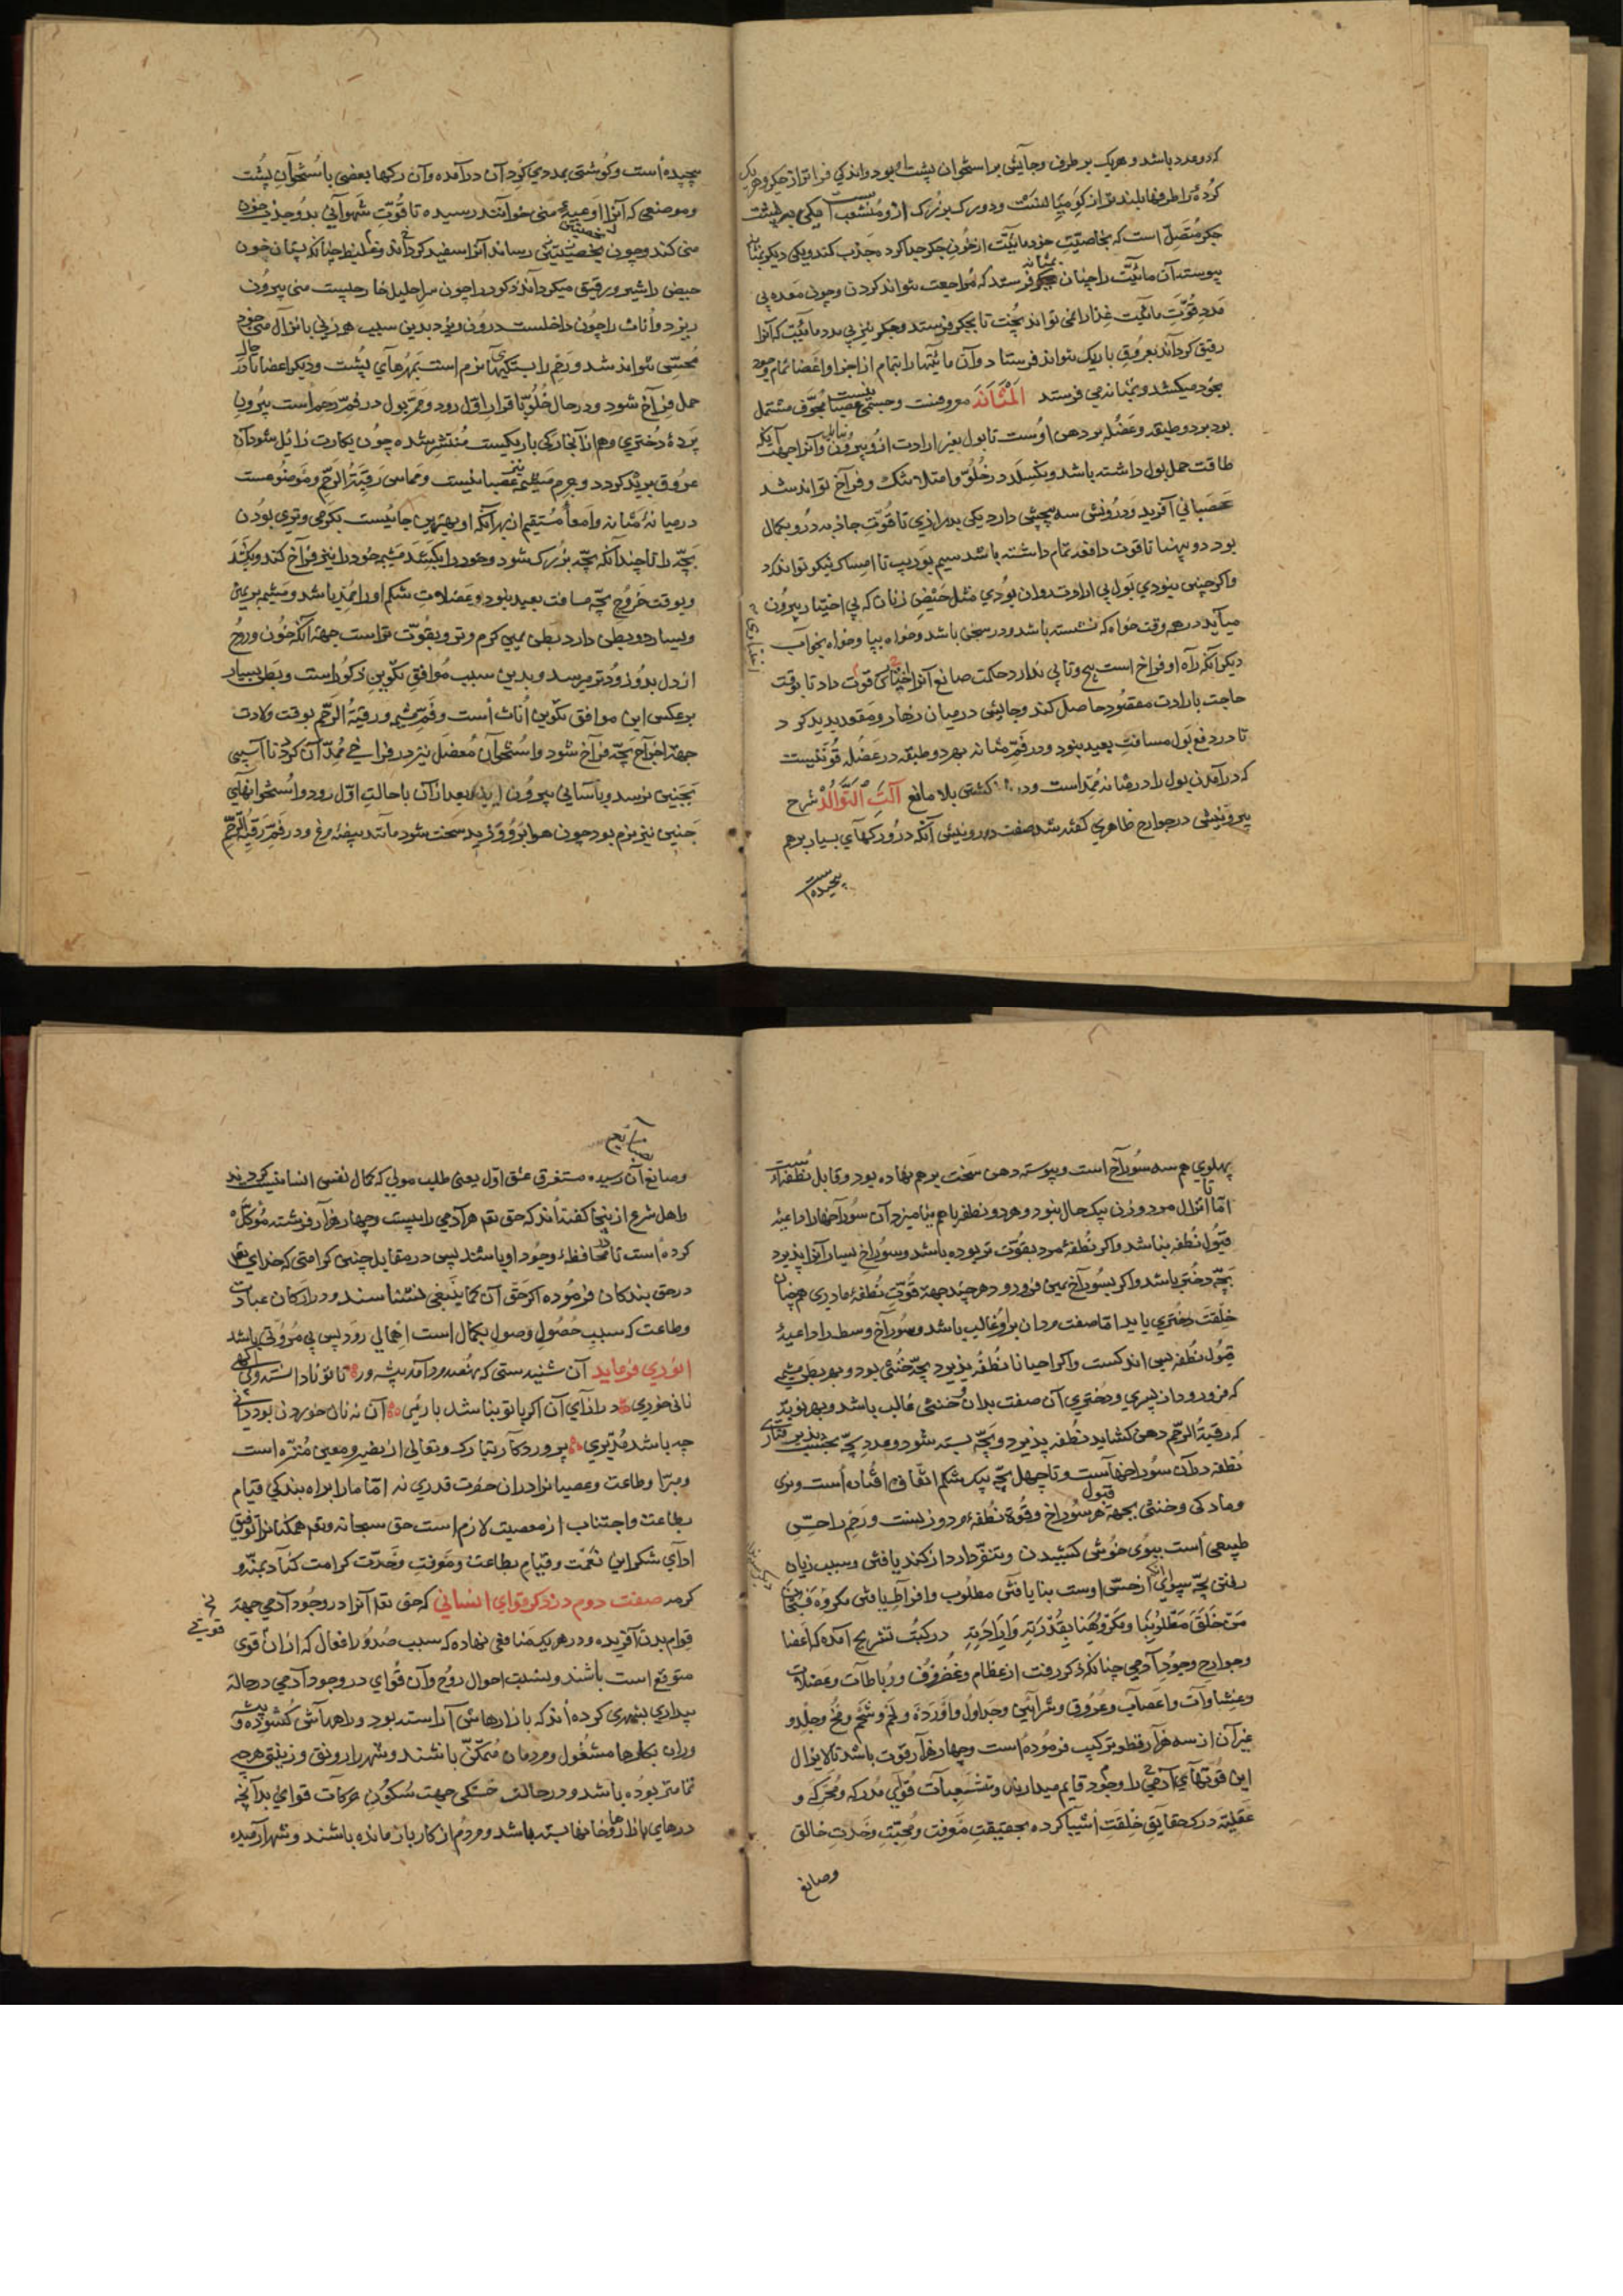 که دو عدد باشد و هریک بر طرفی و جآیئی بر استخوان پشت بود و اندکی فراتر از جگر و هر یک
کرده را طرفها بلند تر از
جگر متصل است که بخاصیّت خود مائیّت از خون جگر جدا کرده جذب کند و یکی دیگر
پیوسته آن مائیّت را چنان فرستد که مراجعت نتواند کردن و چون معده بی
مدد قوّت مائیّت غذا را نمی تواند پخت تا بجگر فرستد و جگر نیز بی مدد مائیّت که آنرا
رقیق گرداند بعروق باریک نتواند فرستاد و آن مائیّتها را بتمام از اجزا و اعضا تمام
بخود میکشد و بمثانه می فرستد اَلْمَثَانَه معروفست و جسمی عصبانیست مجوّف مشتمل
بود بدو طبقه و عضله بر دهن اوست تا بول بغیر ارادت ازو بیرون نیاید و آنرا جهت آنکه
طاقت حمل بول داشته باشد و نگسلد در خلوّ و امتلا تنگ و فراخ تواند شد
عصبانی آفرید و درونش سه پیچشی دارد یکی بدرازی تا قوّت جاذبه درو بکمال
بود دو پهنا تا قوت دافعه تمام داشته باشد سیم بوریب تا امساک نیکو تواند کرد
و اگر چنین نبودی بول بی ارادت روان بودی مثل حیض زنان که بی اختیار بیرون
میآید در هر وقت خواه که نشسته باشد و در سخن باشد و خواه بپا و خواه بخواب
دیگر آنکه راه او فراخ است هیچ وتابی ندارد حکمت صانع آنرا اختیاری قوت داد تا بوقت
حاجت بارادت مقصود حاصل کند و جایش در میان زهار و مقعد پدید کرد
تا در دفع بول مسافت بعید نبود و در فم مثانه بهر دو طبقه در عضله قوّتیست
که در آمدن بول را در مثانه ممدّ است و در کشش بلا مانع آلَتِ اَلتَّوَالُدْ شرح
بیرونیش در جوارح ظاهری گفته شد صفت درونیش آنکه درو رگهای بسیار برهم
پیچیده است
پیچیده است و گوشتی بمددی گرد آن درآمده و آن رگها بعضی با استخوان پشت
و موضعی که آنرا اوعیهٔ منی خوانند رسیده تا قوّت شهوانی بدو جذب خون
منی کند و چون بخصیتین رساند آنرا سفید گرداند و غلیظ چنانکه پستان خون
حیض را شیر و رقیق میگرداند و ذکور را چون سر احلیل خارجیست منی بیرون
ریزد و اناث را چون داخلست درون ریزد بدین سبب هر زنی بانزال منی خود
محسّ نتواند شد و رحم را بستگیهای نرم است بمهرهآی پشت و دیگر اعضا تا در حال
حمل فراخ شود و در حال خلوّ باقرار اوّل رود و ممرّ بول در فم رحم است بیرون
پردهٔ دختری و هم از آنجا رگی باریکست منتشر شده چون بکارت زایل شود آن
عروق بریده گردد و جرم مشیمه نیز عصبانیست و مماس رقبة الرحم و موضوعست
در میانهٔ مثانه و امعاء مستقیم از بهر آنکه او بهترین جائیست بگرمی و تری بودن
بچّه را تا چندانکه بچّه بزرگ شود و خود را بکشد مشیمه خود را نیز فراخ کند و بکشد
و بوقت خروج بچّه مسافت بعید نبود و عضلات شکم او را ممدّ باشد و مشیمه بر یمین
و یسار دو بطن دارد بطن یمین گرم و تر و بقوّت تر است جهة آنکه خون و روح
از دل بدو زودتر میرسد و بدین سبب موافق تکوین ذکور است و بطن یسار
بر عکس این موافق تکوین اناث است و فم مشیمه و رقبة الرحم بوقت ولادت
جهة اخراج بچّه فراخ شود و استخوان مفصل نیز در فراخی ممدّ آن گردد تا آسیبی
بجنین نرسد و بآسانی بیرون آید بعد از آن با حالت اوّل رود و استخوانهای
جنین نیز نرم بود چون هوا برو وزید سخت شود مانند بیضهٔ مرغ و در فم رقبة الرحم
پهلوی هم سه سوراخ است و پیوسته دهن سخت برهم نهاده بود و قابل نطفه است
امّا تا انزال مرد و زن بیک حال نبود و هر دو نطفه باهم نیامیزد آن سوراخها را داعیهٔ
قبول نطفه نباشد و اگر نطفهٔ مرد بقوّت تر بوده باشد و سوراخ یسار آنرا پذیرد
بچّه دختر باشد و اگر بسوراخ یمین فرو رود هر چند جهة قوّت نطفهٔ مادری هم چنان
خلقت دختری یابد امّا صفت مردان برو غالب باشد و سوراخ وسط را داعیهٔ
قبول نطفه بسی اندکست و اگر احیانا نطفه پذیرد بچّه خنثی بود و بهر بطن مشیمه
که فرو رود از پسری و دختری آن صفت بدان خنثی غالب باشد و بهر نوبت
که رقبة الرحم دهن گشاید نطفه پذیرد و بچّه بسته شود و عدد بچّه بحسب
نطفه در آن سوراخهاست و تا چهل بچّه بیک شکم اتّفاق افتاده است و نری
و مادگی و خنثی بجهة قبول هر سوراخ و قوة نطفهٔ مرد و زنست و رحم را حسّ
طبیعی است ببوی خوش کشیدن و متنفّر دارد از گند یافتن و سبب زیان
رفتن بچّه از حسّ اوست بنا یافتن مطلوب و افراط یافتن مکروه فَسُبْحَانَ
مَنْ خَلَقَ مَطْلُوبَنَا وَمَکْرُوهَنَا بِقُدْرَتِهِ وَاِرَادَتِهِ در کتب تشریح آمده که اعضا
و جوارح وجود آدمی چنانکه ذکر رفت از عظام و غضروف و رباطات و عضلات
و غشاوات و اعصاب و عروق و شرائین و جداول و اورده و لحم و شحم و مخ و جلد و
غیر آن از سه هزار قطعه ترکیب فرموده است و چهار هزار قوّت باشد تا لایزال
این قوّتهای آدمی را وجود قایم میدارند و تشعبات قوای مدرکه و محرکه و
عقلیه درک حقایق خلقت اشیا کرده بحقیقت معرفت و محبّت وحدت خالق
و صانع
و صانع آن رسیده مستغرق عشق اوّل یعنی طلب مولی که کمال نفس انسانیست گردند
و اهل شرع از اینجا گفته اند که حق تعم هر آدمی را بیست و چهار هزار فرشته موکّل
کرده است تا محافظهٔ وجود او باشند پس در مقابل چنین کرامتی که خدای تعم
در حق بندگان فرموده اگر حقّ آن کما ینبغی نشناسند و در ارکان عبادت
و طاعت که سبب حصول وصول بکمال است اهمالی رود پس بی مروّتی باشد
انوری فرماید آن شنیدستی که نهصد مرد آمد پیشه ور تا تو نادانسته و بی آگهی
نانی خوری در ازای آن اگر با تو نباشد یارئی آن نه نان خوردن بود دانی
چه باشد مدبری پروردگار تبارک و تعالی از نصیر و معین منزّه است
و مبرّا و طاعت و عصیانرا در آن حضرت قدری نه امّا ما را براه بندگی قیام
بطاعت و اجتناب از معصیت لازم است حق سبحانه و تعم همگنانرا توفیق
ادای شکر این نعمت و قیام بطاعت و معرفت وحدت کرامت کناد بمنّه و
کرمه صفت دوم در ذکر قوای انسانی که حق تعم آنرا در وجود آدمی جهة
قوام بدن آفریده و در هر یک منافعی نهاده که سبب صدور افعال که از آن قوی
متوقع است باشند و بنسبت احوال روح و آن قوای در وجود آدمی در حالة
بیداری بشهری کرده اند که بازارهاش آراسته بود و راههاش گشوده و پیشه
وران بکارها مشغول و مردمان متمکّن باشند و شهر را رونق و زینتی هر چه
تمامتر بوده باشد و در حالت خستگی جهت سکون حرکات قوای بدانچه
درهای بازارها و خانها بسته باشد و مردم از کار باز مانده باشند و شهر آرمیده